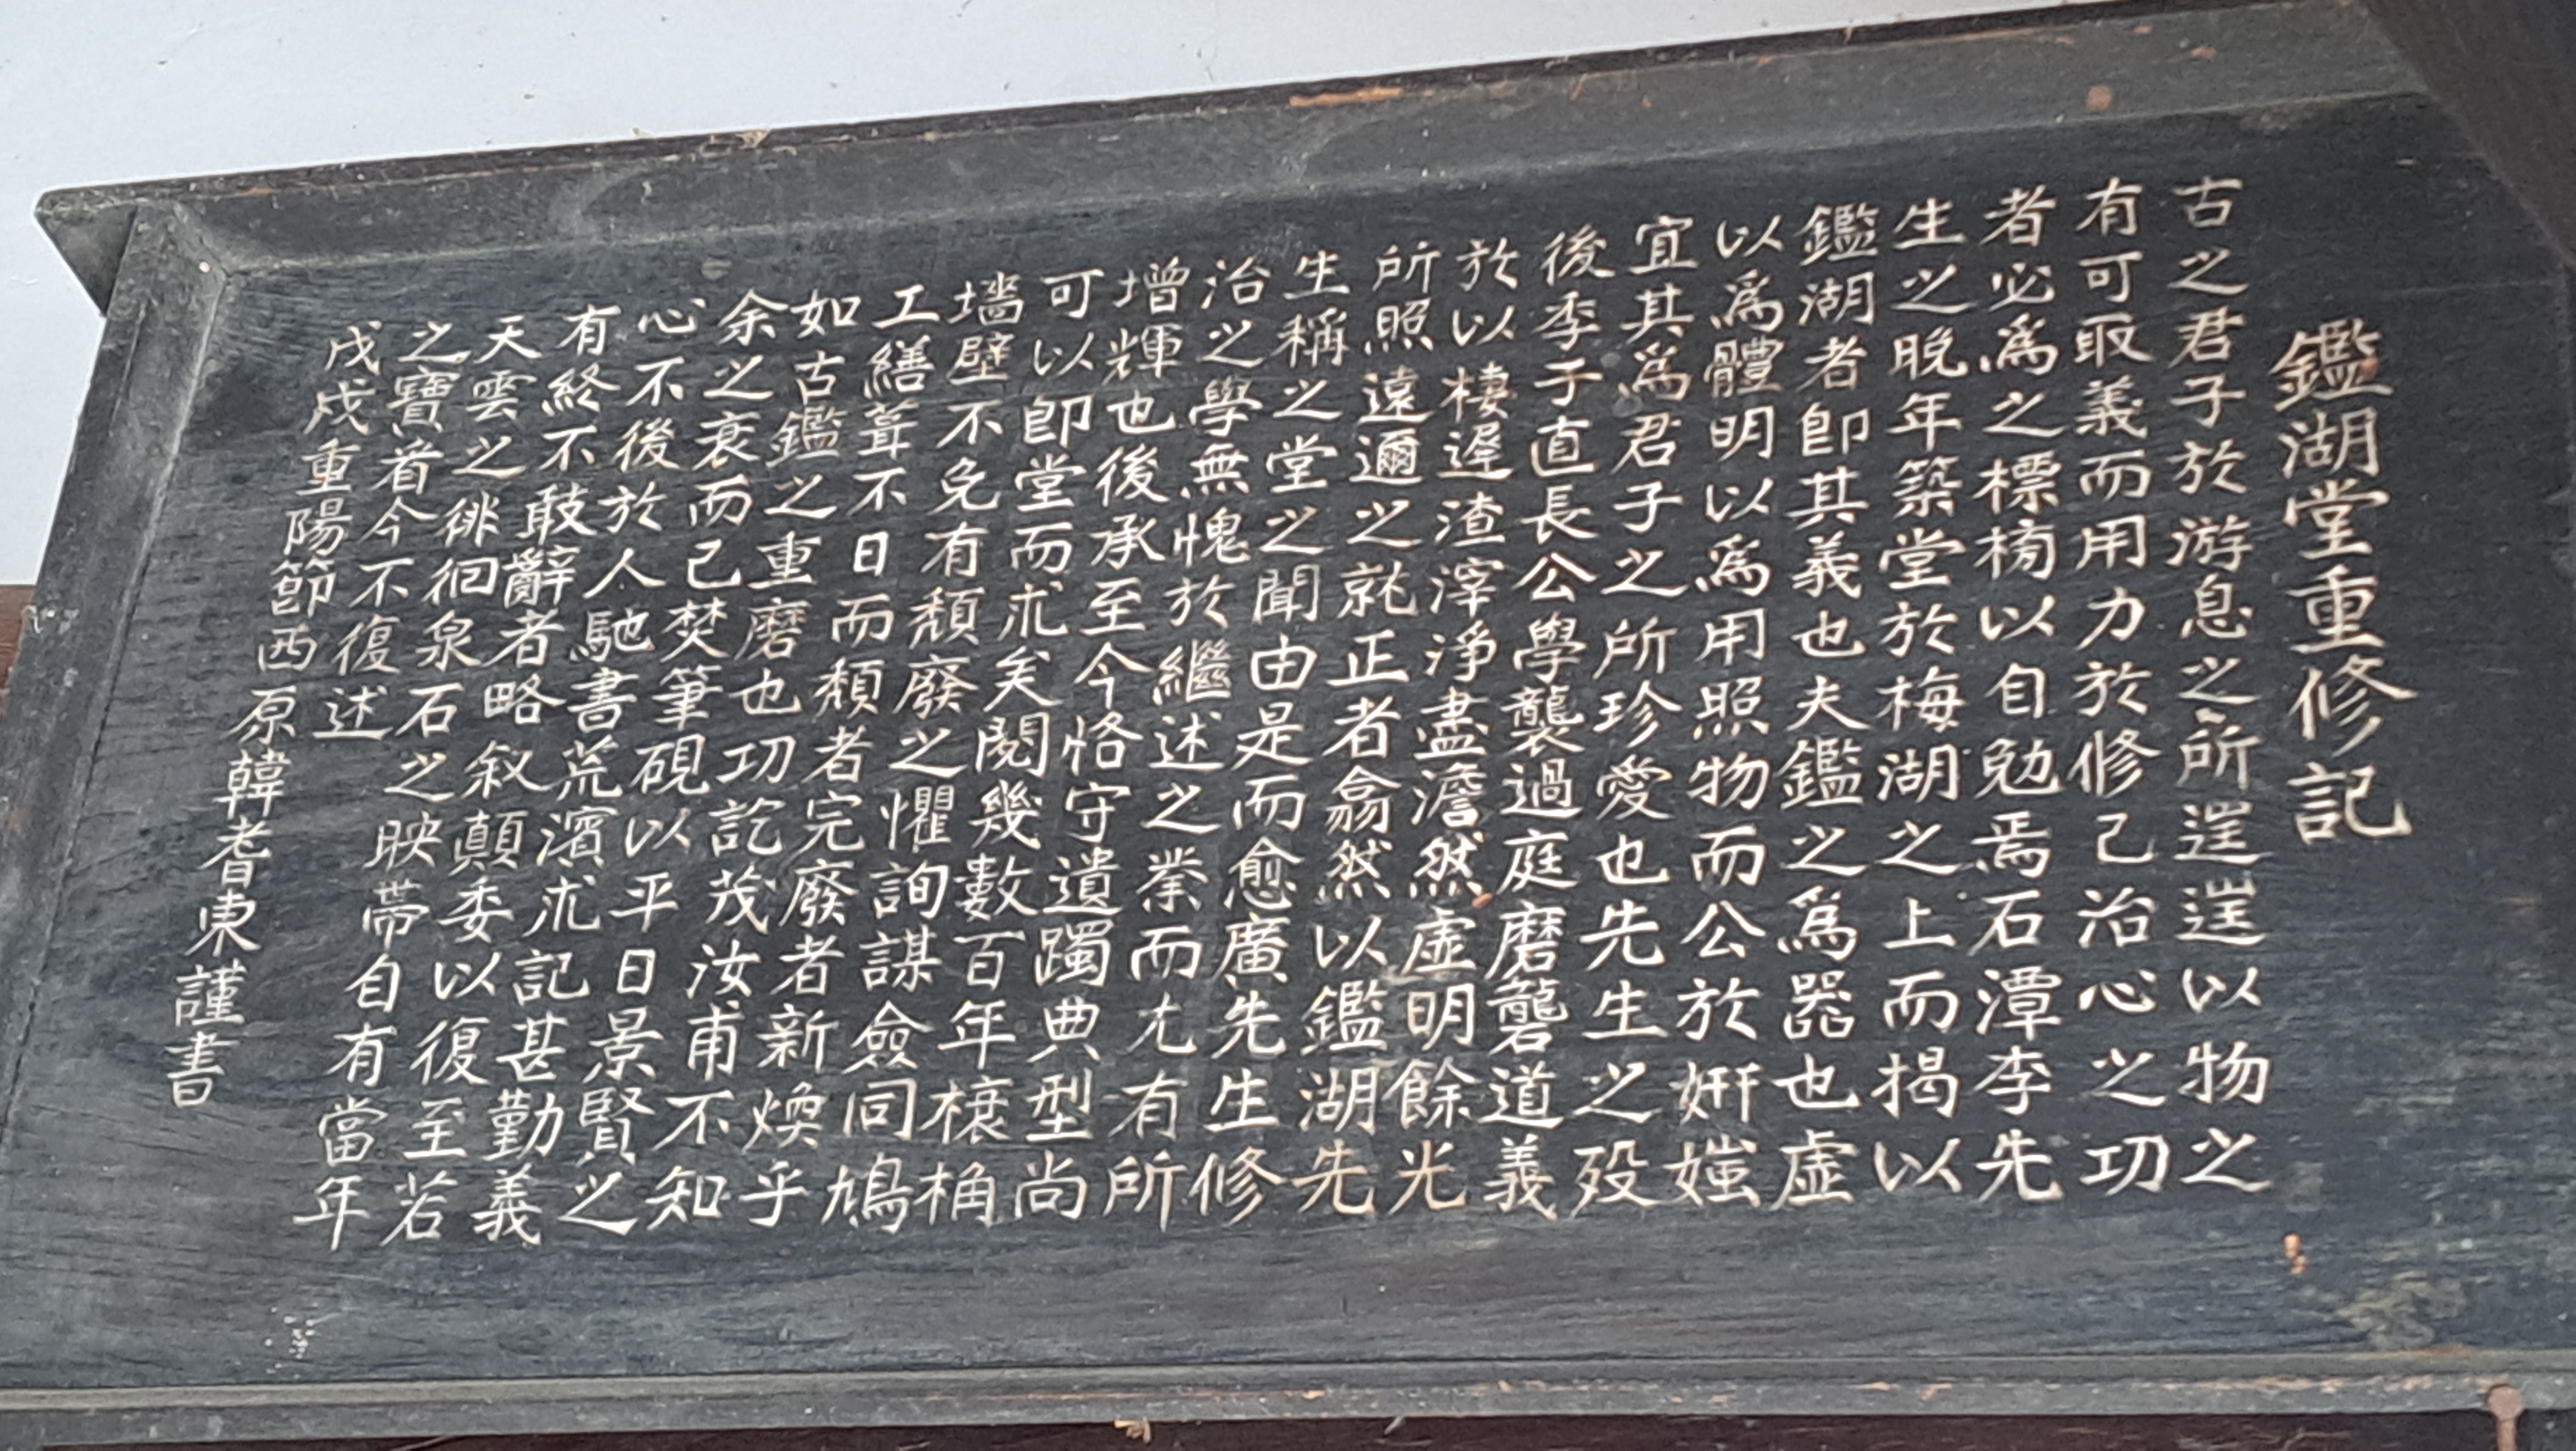 鑑湖堂重修記
古之君子於游息之所逞逞以物之
有可取義而用力於修己治心之功
者必爲之標榜以自勉焉石潭李先
生之晚年築堂於梅湖之上而揭以
鑑湖者卽其義也夫鑑之爲器也虛
以爲體明以爲用照物而公於姸媸
宜其爲君子之所珍愛也先生之歿
後季子直長公學襲過庭磨礱道義
於以棲遲渣滓淨盡澹然虛明餘光
所照遠邇之就正者翕然以鑑湖先
生稱之堂之聞由是而愈廣先生修
治之學無愧於繼述之業而尤有所
增輝也後承至今恪守遺躅典型尚
可以卽堂而求矣閱幾數百年榱桷
墻壁不免有頹廢之懼詢謀僉同鳩
工繕葺不日而頹者完廢者新煥乎
如古鑑之重磨也功訖茂汝甫不知
余之衰而已焚筆硯以平日景賢之
心不後於人馳書荒濱求記甚勤義
有終不敢辭者略叙顚委以復至若
天雲之徘徊泉石之映帶自有當年
之寶者今不復述
戊戌重陽節西原韓耆東謹書